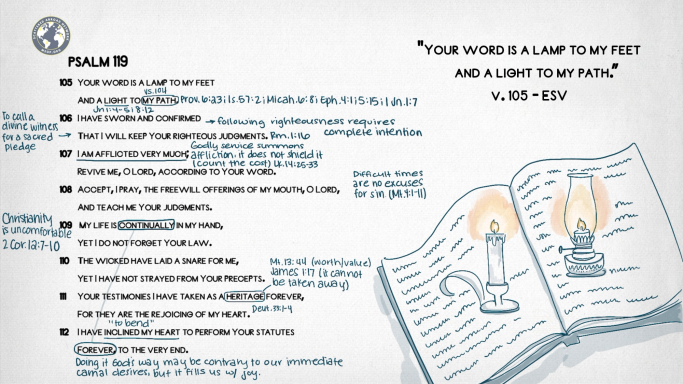 "YOUR WORD IS A LAMP TO MY FEET
AND A LIGHT TO MY PATH."
V. 105 - ESV
PSALM 119
105 YOUR WORD IS A LAMP TO MY FEET
vs.104
AND A LIGHT TO MY PATH. Prov. 6:23 | Is. 57:2 | Micah. 6:8 | Eph. 4:1 | 5:15 | 1 Jn. 1:7
Jn 1:4-5 | 8:12
To call a divine witness for a sacred pledge
106 I HAVE SWORN AND CONFIRMED → following righteousness requires complete intention
THAT I WILL KEEP YOUR RIGHTEOUS JUDGMENTS. Rm. 1:16
107 I AM AFFLICTED VERY MUCH; Godly service summons affliction, it does not shield it (count the cost) Lk. 14:25-33
REVIVE ME, O LORD, ACCORDING TO YOUR WORD.
Difficult times are no excuses for sin. (Mt. 4:1-11)
108 ACCEPT, I PRAY, THE FREEWILL OFFERINGS OF MY MOUTH, O LORD,
AND TEACH ME YOUR JUDGMENTS.
Christianity is uncomfortable 2 Cor. 12:7-10
109 MY LIFE IS CONTINUALLY IN MY HAND,
YET I DO NOT FORGET YOUR LAW.
110 THE WICKED HAVE LAID A SNARE FOR ME,
YET I HAVE NOT STRAYED FROM YOUR PRECEPTS.
Mt. 13:44 (worth/value)
James 1:17 (it cannot be taken away)
111 YOUR TESTIMONIES I HAVE TAKEN AS A HERITAGE FOREVER,
FOR THEY ARE THE REJOICING OF MY HEART. Deut. 33:1-4
"to bend"
112 I HAVE INCLINED MY HEART TO PERFORM YOUR STATUTES
FOREVER, TO THE VERY END.
Doing it God's way may be contrary to our immediate
carnal desires, but it fills us w/ joy.